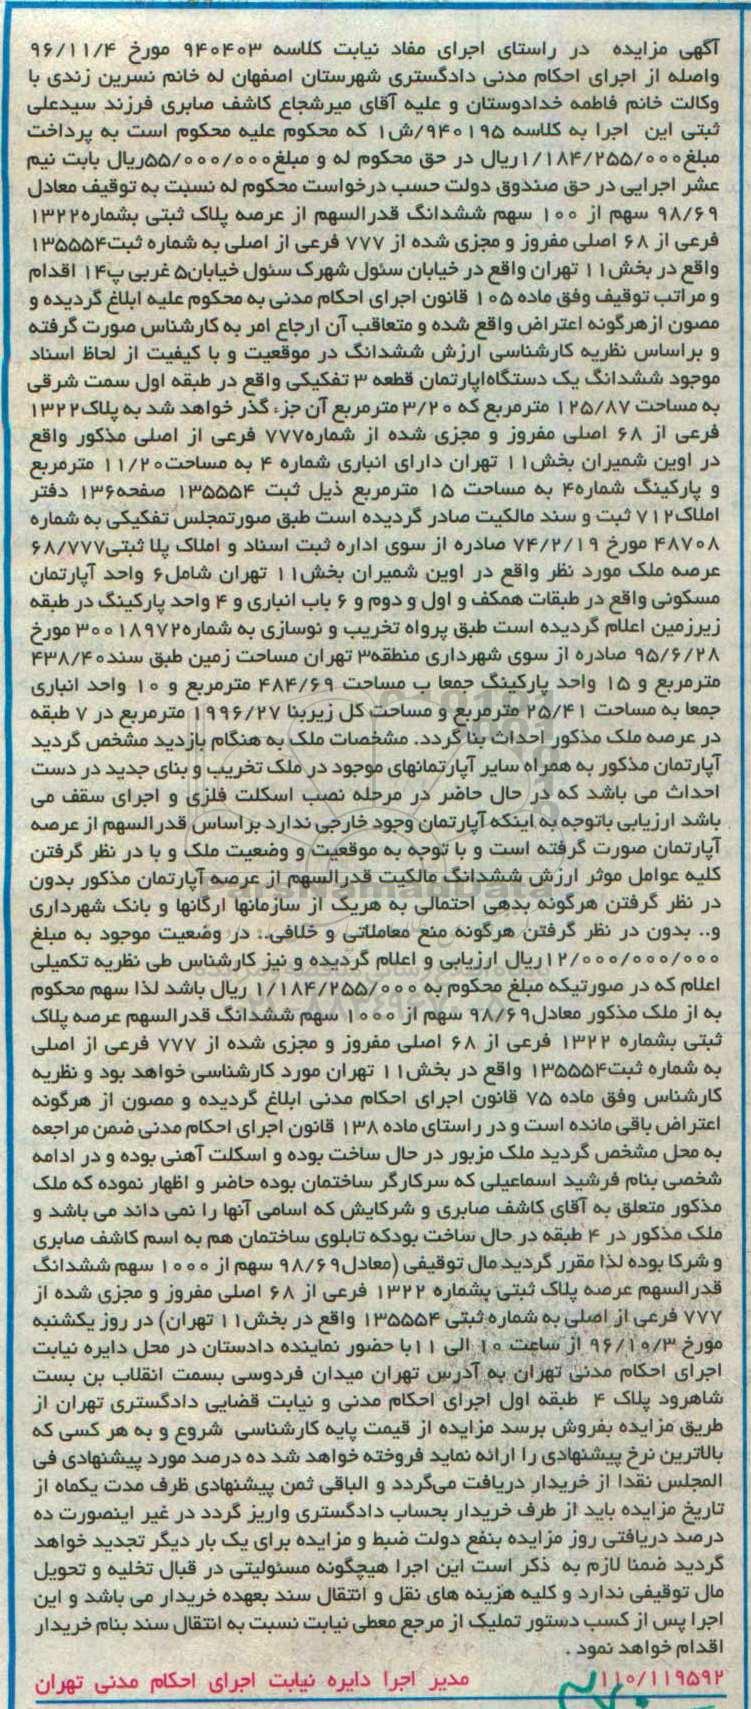 آگهی مزایده در راستای اجرای مفاد نیابت کلاسه ۹۴۰۴۰۳ مورخ ۹۶/۱۱/۴
واصله از اجرای احکام مدنی دادگستری شهرستان اصفهان له خانم نسرین زندی با
وکالت خانم فاطمه خدادوستان و علیه آقای میرشجاع کاشف صابری فرزند سیدعلی
ثبتی این اجرا به کلاسه ۹۴۰۱۹۵/ش۱ که محکوم علیه محکوم است به پرداخت
مبلغ۱/۱۸۴/۲۵۵/۰۰۰ریال در حق محکوم له و مبلغ۵۵/۰۰۰/۰۰۰ریال بابت نیم
عشر اجرایی در حق صندوق دولت حسب درخواست محکوم له نسبت به توقیف معادل
۹۸/۶۹ سهم از ۱۰۰ سهم ششدانگ قدرالسهم از عرصه پلاک ثبتی بشماره۱۳۲۲
فرعی از ۶۸ اصلی مفروز و مجزی شده از ۷۷۷ فرعی از اصلی به شماره ثبت۱۳۵۵۵۴
واقع در بخش۱۱ تهران واقع در خیابان سئول شهرک سئول خیابان۵ غربی پ۱۴ اقدام
و مراتب توقیف وفق ماده ۱۰۵ قانون اجرای احکام مدنی به محکوم علیه ابلاغ گردیده و
مصون ازهرگونه اعتراض واقع شده و متعاقب آن ارجاع امر به کارشناس صورت گرفته
و براساس نظریه کارشناسی ارزش ششدانگ در موقعیت و با کیفیت از لحاظ اسناد
موجود ششدانگ یک دستگاه‌اپارتمان قطعه ۳ تفکیکی واقع در طبقه اول سمت شرقی
به مساحت ۱۲۵/۸۷ مترمربع که ۳/۲۰ مترمربع آن جزء گذر خواهد شد به پلاک۱۳۲۲
فرعی از ۶۸ اصلی مفروز و مجزی شده از شماره۷۷۷ فرعی از اصلی مذکور واقع
در اوین شمیران بخش۱۱ تهران دارای انباری شماره ۴ به مساحت۱۱/۲۰ مترمربع
و پارکینگ شماره۴ به مساحت ۱۵ مترمربع ذیل ثبت ۱۳۵۵۵۴ صفحه۱۳۶ دفتر
املاک۷۱۲ ثبت و سند مالکیت صادر گردیده است طبق صورتمجلس تفکیکی به شماره
۴۸۷۰۸ مورخ ۷۴/۲/۱۹ صادره از سوی اداره ثبت اسناد و املاک پلا ثبتی۶۸/۷۷۷
عرصه ملک مورد نظر واقع در اوین شمیران بخش۱۱ تهران شامل۶ واحد آپارتمان
مسکونی واقع در طبقات همکف و اول و دوم و ۶ باب انباری و ۴ واحد پارکینگ در طبقه
زیرزمین اعلام گردیده است طبق پرواه تخریب و نوسازی به شماره۳۰۰۱۸۹۷۲ مورخ
۹۵/۶/۲۸ صادره از سوی شهرداری منطقه۳ تهران مساحت زمین طبق سند۴۳۸/۴۰
مترمربع و ۱۵ واحد پارکینگ جمعا ب مساحت ۴۸۴/۶۹ مترمربع و ۱۰ واحد انباری
جمعا به مساحت ۲۵/۴۱ مترمربع و مساحت کل زیربنا ۱۹۹۶/۲۷ مترمربع در ۷ طبقه
در عرصه ملک مذکور احداث بنا گردد. مشخصات ملک به هنگام بازدید مشخص گردید
آپارتمان مذکور به همراه سایر آپارتمانهای موجود در ملک تخریب و بنای جدید در دست
احداث می باشد که در حال حاضر در مرحله نصب اسکلت فلزی و اجرای سقف می
باشد ارزیابی باتوجه به اینکه آپارتمان وجود خارجی ندارد براساس قدرالسهم از عرصه
آپارتمان صورت گرفته است و با توجه به موقعیت و وضعیت ملک و با در نظر گرفتن
کلیه عوامل موثر ارزش ششدانگ مالکیت قدرالسهم از عرصه آپارتمان مذکور بدون
در نظر گرفتن هرگونه بدهی احتمالی به هریک از سازمانها ارگانها و بانک شهرداری
و.. بدون در نظر گرفتن هرگونه منع معاملاتی و خلافی.. در وضعیت موجود به مبلغ
۱۲/۰۰۰/۰۰۰/۰۰۰ریال ارزیابی و اعلام گردیده و نیز کارشناس طی نظریه تکمیلی
اعلام که در صورتیکه مبلغ محکوم به ۱/۱۸۴/۲۵۵/۰۰۰ ریال باشد لذا سهم محکوم
به از ملک مذکور معادل۹۸/۶۹ سهم از ۱۰۰۰ سهم ششدانگ قدرالسهم عرصه پلاک
ثبتی بشماره ۱۳۲۲ فرعی از ۶۸ اصلی مفروز و مجزی شده از ۷۷۷ فرعی از اصلی
به شماره ثبت۱۳۵۵۵۴ واقع در بخش۱۱ تهران مورد کارشناسی خواهد بود و نظریه
کارشناس وفق ماده ۷۵ قانون اجرای احکام مدنی ابلاغ گردیده و مصون از هرگونه
اعتراض باقی مانده است و در راستای ماده ۱۳۸ قانون اجرای احکام مدنی ضمن مراجعه
به محل مشخص گردید ملک مزبور در حال ساخت بوده و اسکلت آهنی بوده و در ادامه
شخصی بنام فرشید اسماعیلی که سرکارگر ساختمان بوده حاضر و اظهار نموده که ملک
مذکور متعلق به آقای کاشف صابری و شرکایش که اسامی آنها را نمی داند می باشد و
ملک مذکور در ۴ طبقه در حال ساخت بودکه تابلوی ساختمان هم به اسم کاشف صابری
و شرکا بوده لذا مقرر گردید مال توقیفی (معادل۹۸/۶۹ سهم از ۱۰۰۰ سهم ششدانگ
قدرالسهم عرصه پلاک ثبتی بشماره ۱۳۲۲ فرعی از ۶۸ اصلی مفروز و مجزی شده از
۷۷۷ فرعی از اصلی به شماره ثبتی ۱۳۵۵۵۴ واقع در بخش۱۱ تهران) در روز یکشنبه
مورخ ۹۶/۱۰/۳ از ساعت ۱۰ الی ۱۱با حضور نماینده دادستان در محل دایره نیابت
اجرای احکام مدنی تهران به آدرس تهران میدان فردوسی بسمت انقلاب بن بست
شاهرود پلاک ۴ طبقه اول اجرای احکام مدنی و نیابت قضایی دادگستری تهران از
طریق مزایده بفروش برسد مزایده از قیمت پایه کارشناسی شروع و به هر کسی که
بالاترین نرخ پیشنهادی را ارائه نماید فروخته خواهد شد ده درصد مورد پیشنهادی فی
المجلس نقدا از خریدار دریافت می‌گردد و الباقی ثمن پیشنهادی ظرف مدت یکماه از
تاریخ مزایده باید از طرف خریدار بحساب دادگستری واریز گردد در غیر اینصورت ده
درصد دریافتی روز مزایده بنفع دولت ضبط و مزایده برای یک بار دیگر تجدید خواهد
گردید ضمنا لازم به ذکر است این اجرا هیچگونه مسئولیتی در قبال تخلیه و تحویل
مال توقیفی ندارد و کلیه هزینه های نقل و انتقال سند بعهده خریدار می باشد و این
اجرا پس از کسب دستور تملیک از مرجع معطی نیابت نسبت به انتقال سند بنام خریدار
اقدام خواهد نمود .
۱۱۰/۱۱۹۵۹۲ مدیر اجرا دایره نیابت اجرای احکام مدنی تهران